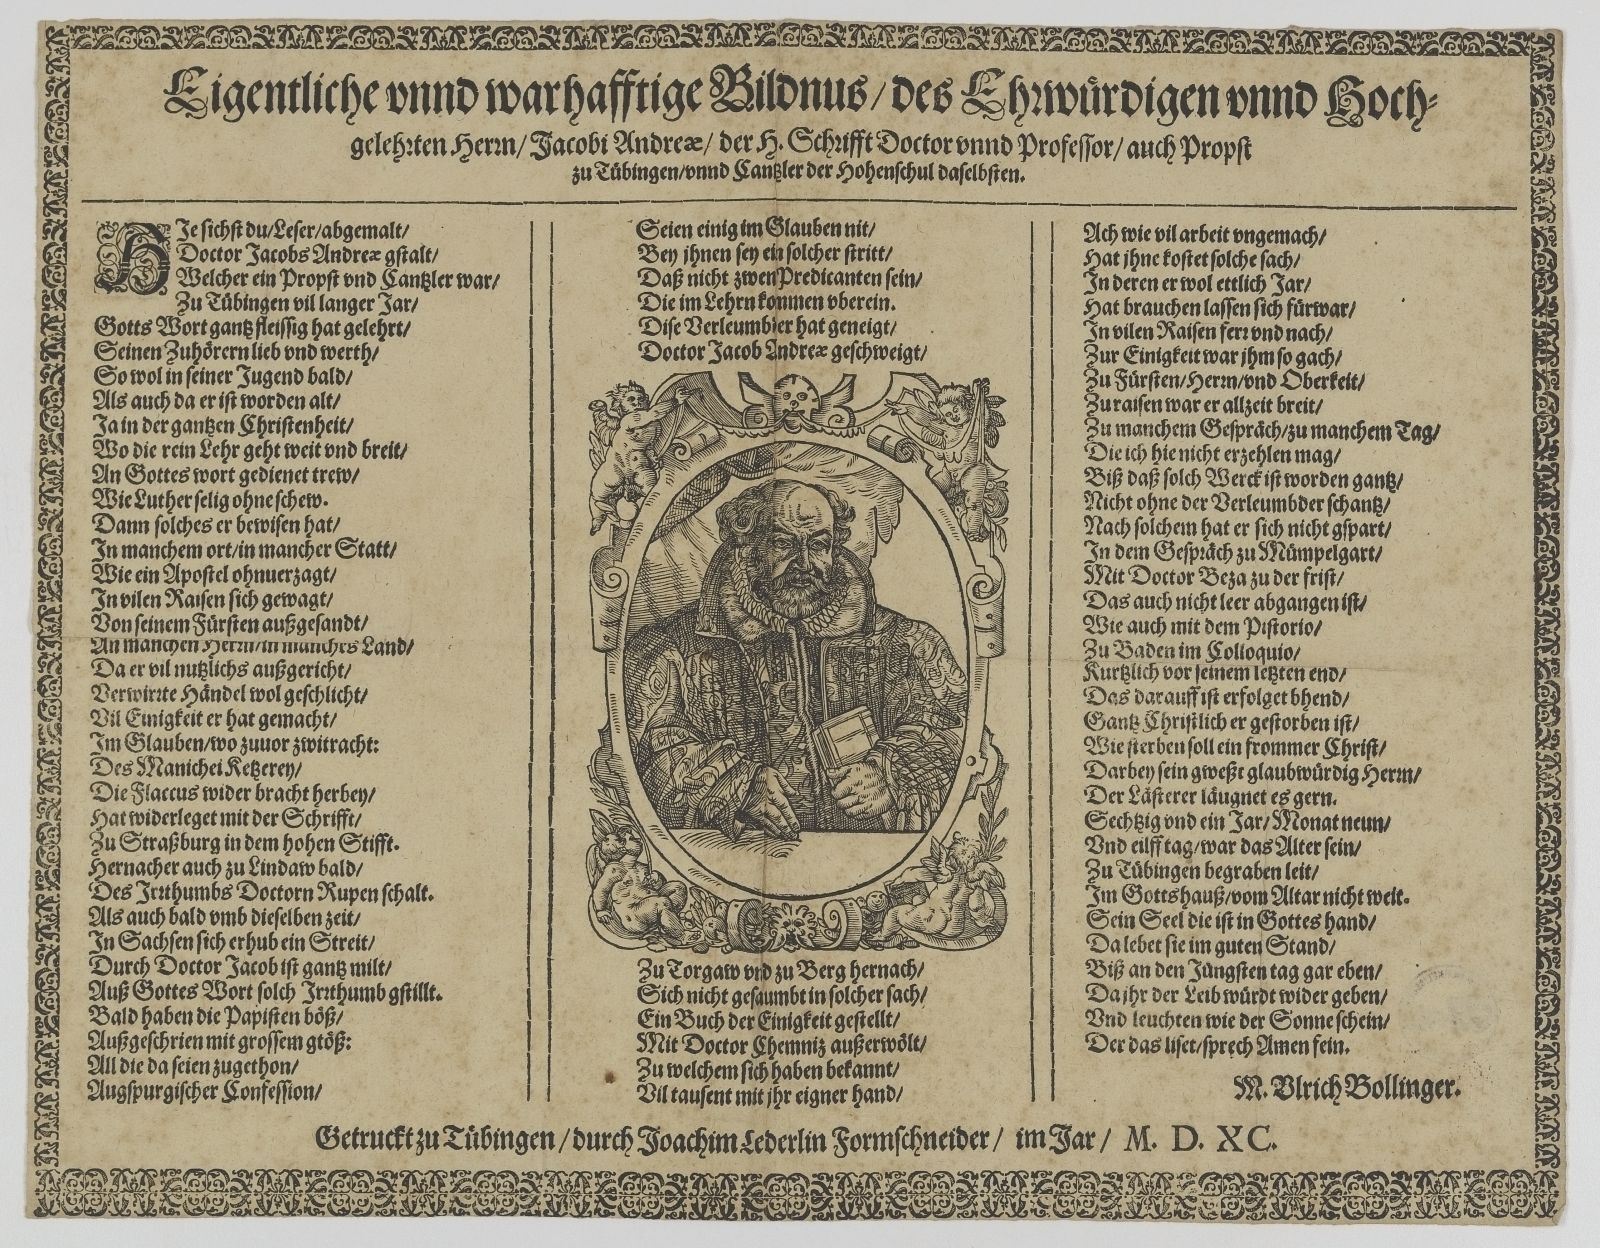 Eigentliche vnnd warhafftige Bildnus/ des Ehrwürdigen vnnd Hoch-
gelehrten Herrn/ Jacobi Andreæ/ der H. Schrifft Doctor vnnd Professor/ auch Propst
zu Tübingen/ vnnd Cantzler der Hohenschul daselbsten.
HJe sichst du/ Leser/ abgemalt/
Doctor Jacobs Andreæ gstalt/
Welcher ein Propst vnd Cantzler war/
Zu Tübingen vil langer Jar/
Gotts Wort gantz fleissig hat gelehrt/
Seinen Zuhörern lieb vnd werth/
So wol in seiner Jugend bald/
Als auch da er ist worden alt/
Ja in der gantzen Christenheit/
Wo die rein Lehr geht weit vnd breit/
An Gottes wort gedienet trew/
Wie Luther selig ohne schew.
Dann solches er bewisen hat/
In manchem ort/ in mancher Statt/
Wie ein Apostel ohnuerzagt/
In vilen Raisen sich gewagt/
Von seinem Fürsten außgesandt/
An manchen Herrn/ in manches Land/
Da er vil nutzlichs außgericht/
Verwirrte Händel wol geschlicht/
Vil Einigkeit er hat gemacht/
Im Glauben/ wo zuuor zwitracht:
Des Manichei Ketzerey/
Die Flaccus wider bracht herbey/
Hat widerleget mit der Schrifft/
Zu Straßburg in dem hohen Stifft.
Hernacher auch zu Lindaw bald/
Des Irrthumbs Doctorn Rupen schalt.
Als auch bald vmb dieselben zeit/
In Sachsen sich erhub ein Streit/
Durch Doctor Jacob ist gantz milt/
Auß Gottes Wort solch Irrthumb gstillt.
Bald haben die Papisten böß/
Außgeschrien mit grossem gtöß:
All die da seien zugethon/
Augspurgischer Confession/
Seien einig im Glauben nit/
Bey jhnen sey ein solcher stritt/
Daß nicht zwen Predicanten sein/
Die im Lehrn kommen vberein.
Dise Verleumbder hat geneigt/
Doctor Jacob Andreæ geschweigt/
Zu Torgaw vnd zu Berg hernach/
Sich nicht gesaumbt in solcher sach/
Ein Buch der Einigkeit gestellt/
Mit Doctor Chemniz außerwölt/
Zu welchem sich haben bekannt/
Vil tausent mit jhr eigner hand/
Ach wie vil arbeit vngemach/
Hat jhne kostet solche sach/
In deren er wol ettlich Jar/
Hat brauchen lassen sich fürwar/
In vilen Raisen ferr vnd nach/
Zur Einigkeit war jhm so gach/
Zu Fürsten/ Herrn/ vnd Oberkeit/
Zu raisen war er allzeit breit/
Zu manchem Gespräch/ zu manchem Tag/
Die ich hie nicht erzehlen mag/
Biß daß solch Werck ist worden gantz/
Nicht ohne der Verleumbder schantz/
Nach solchem hat er sich nicht gspart/
In dem Gespräch zu Mümpelgart/
Mit Doctor Beza zu der frist/
Das auch nicht leer abgangen ist/
Wie auch mit dem Pistorio/
Zu Baden im Colloquio/
Kurtzlich vor seinem letzten end/
Das darauff ist erfolget bhend/
Gantz Christlich er gestorben ist/
Wie sterben soll ein frommer Christ/
Darbey sein gweßt glaubwürdig Herrn/
Der Lästerer läugnet es gern.
Sechtzig vnd ein Jar/ Monat neun/
Vnd eilff tag/ war das Alter sein/
Zu Tübingen begraben leit/
Im Gottshauß/ vom Altar nicht weit.
Sein Seel die ist in Gottes hand/
Da lebet sie im guten Stand/
Biß an den Jüngsten tag gar eben/
Da jhr der Leib würdt wider geben/
Vnd leuchten wie der Sonne schein/
Der das liset/ sprech Amen fein.
M. Vlrich Bollinger.
Getruckt zu Tübingen/ durch Joachim Lederlin Formschneider/ im Jar/ M. D. XC.